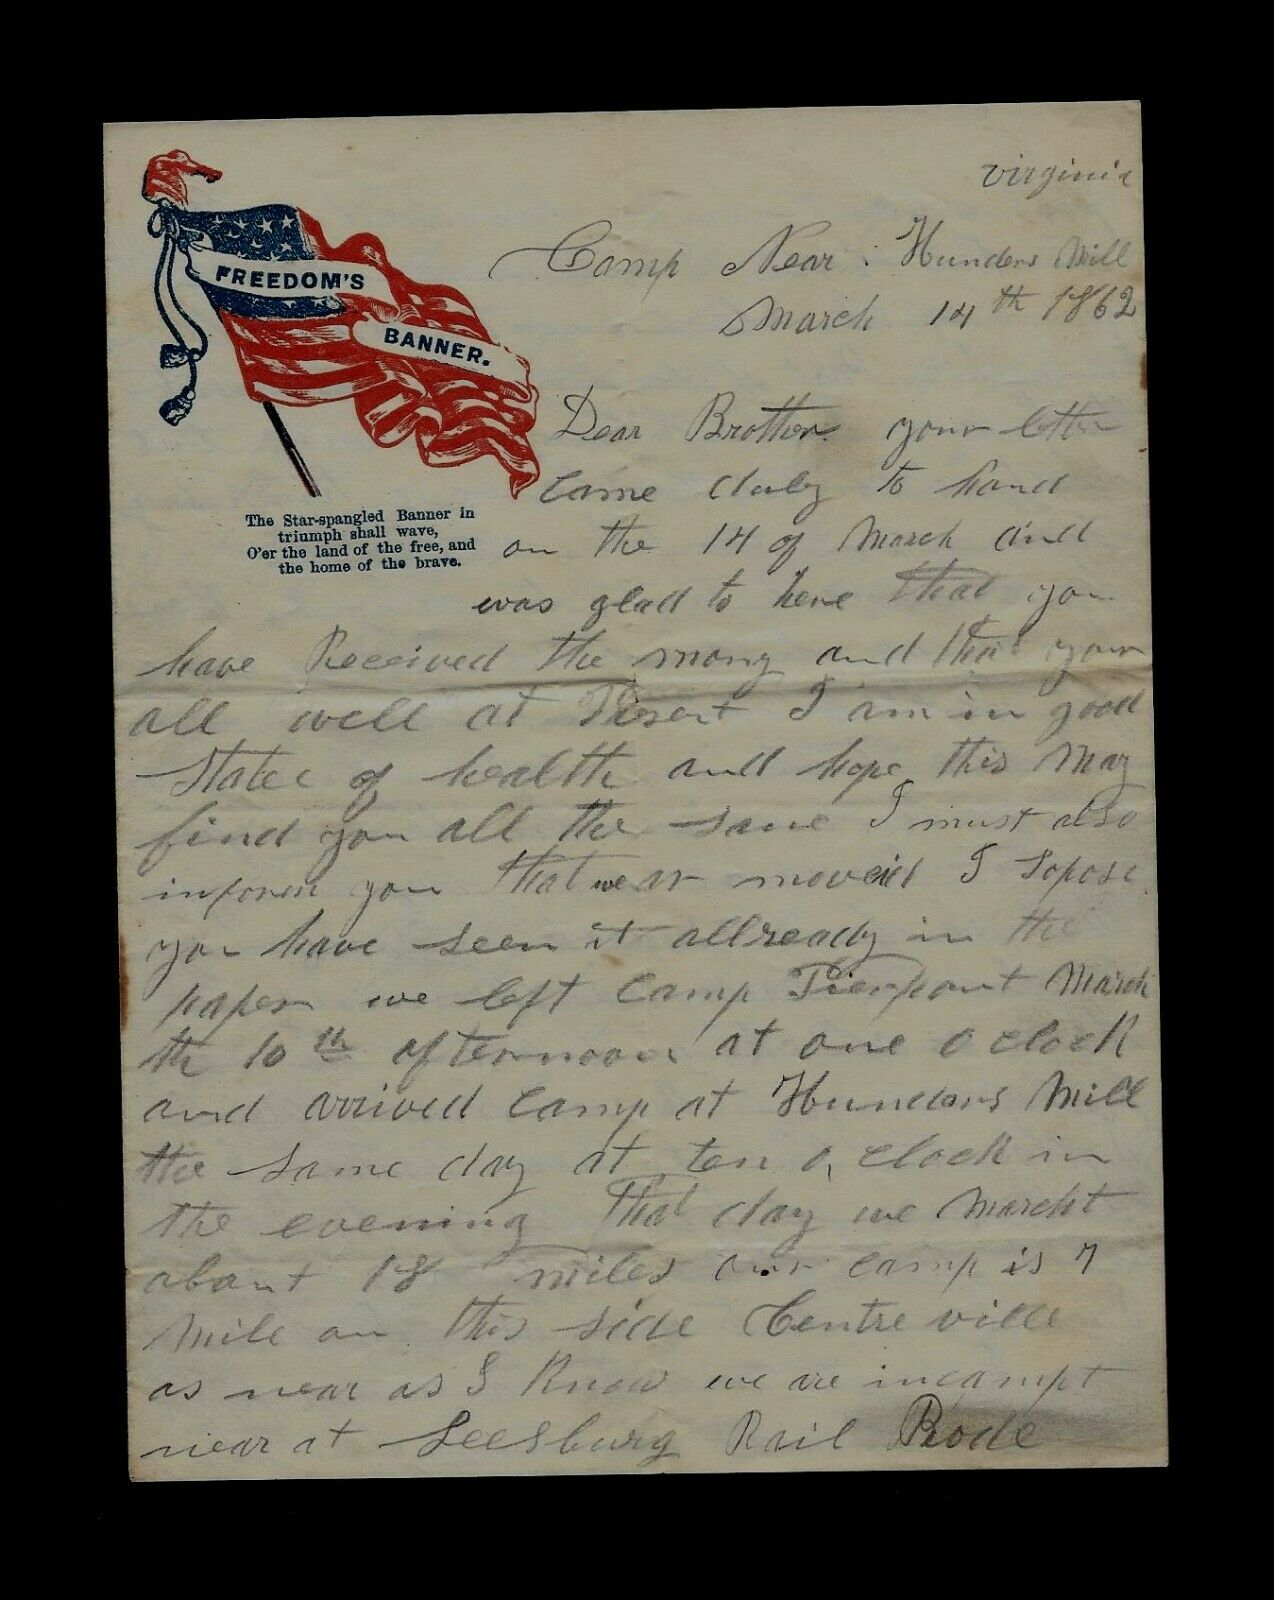 virginia
Camp Near Hunders Mill
March 14th 1862
FREEDOM'S
BANNER.
The Star-spangled Banner in
triumph shall wave,
O'er the land of the free, and
the home of the brave.
Dear Brother your letter
came duly to hand
on the 14 of March and
was glad to here that you
have Received the mony and that your
all well at Presant I am in good
State of health and hope this May
find you all the same I must also
inform you that we ar moveid I Sopose
you have seen it allready in the
paper we left Camp Pierpont March
the 10th afternoon at one o clock
and arrived camp at Hunders Mill
the same day at ten o, clock in
the evening That day we Marcht
about 18 miles our camp is 7
Mile on this side Centreville
as near as I Know we are incampt
near at Leesburg Rail Rode